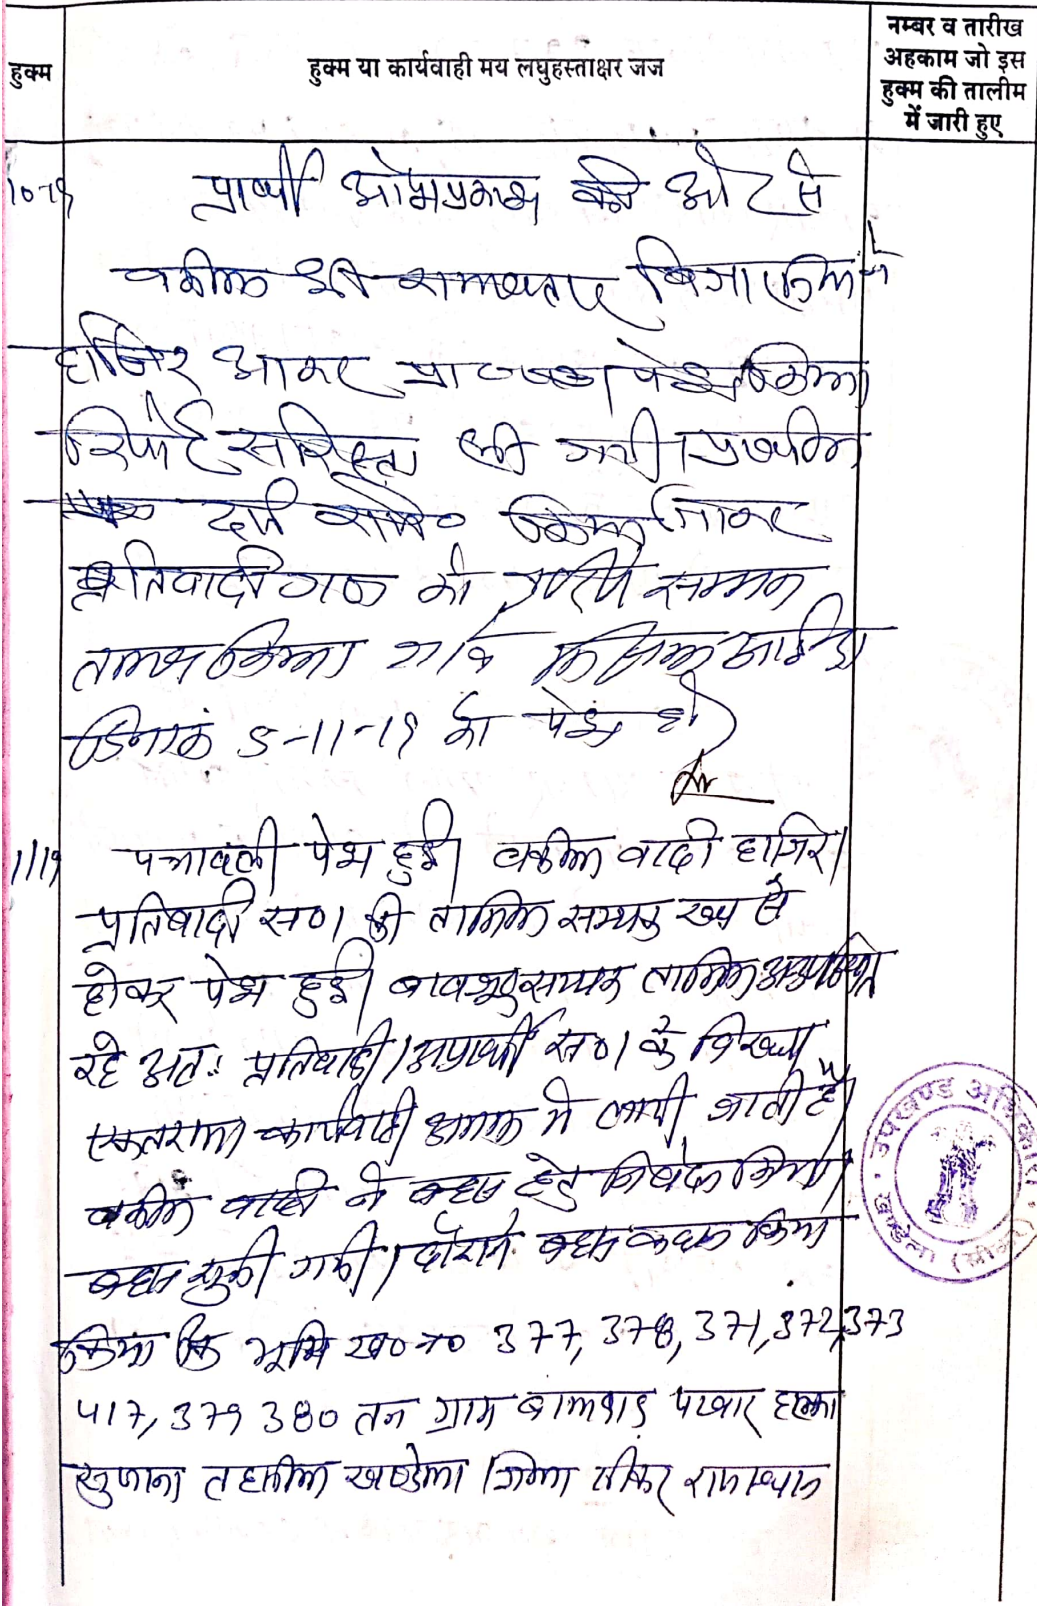 हुक्म
हुक्म या कार्यवाही मय लघुहस्ताक्षर जज
नम्बर व तारीख
अहकाम जो इस
हुक्म की तालीम
में जारी हुए
10-19
प्रार्थी ओमप्रकाश की ओर से
वकील श्री
हाजिर आकर प्रा० पत्र पेश किया
रिपोर्ट सरिस्ता ली गयी।
दर्ज किया जाकर
प्रतिवादीगण को जरिये सम्मन
तलब किया
दिनांक 5-11-19 को पेश हो
1/19
पत्रावली पेश हुई। वकील वादी हाजिर।
प्रतिवादी स० 1 की तामिल सम्यक रूप से
होकर पेश हुई। बावजूद सम्यक तामिल अनुपस्थित
रहे अतः प्रतिवादी/अप्रार्थी स० 1 के विरुद्ध
एकतरफा कार्यवाही अमल मे लायी जाती है।
वकील वादी ने बहस हेतु निवेदन किया।
बहस सुनी गयी। दौराने बहस कथन किया
किया कि भूमि ख० न० 377, 378, 371, 372, 373
417, 379 380 तन ग्राम पटवार हल्का
तहसील खण्डेला जिला सीकर राजस्थान
उपखण्ड अधिकारी
खण्डेला (सीकर)